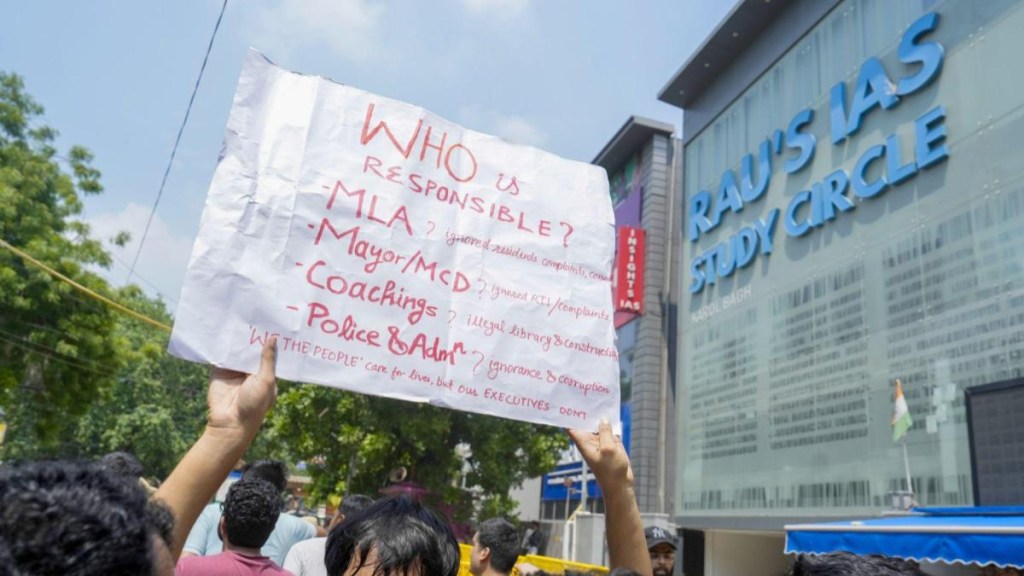 WHO is
RESPONSIBLE?
- MLA ? ignored residents complaints,
- Mayor/MCD ? ignored RTI/complaints
- Coachings ? illegal library & construction
- Police & Admn ? ignorance & corruption
'WE THE PEOPLE' care for lives, but OUR EXECUTIVES DON'T
RAU'S IAS
STUDY CIRCLE
KAROL BAGH
INSIGHTS IAS